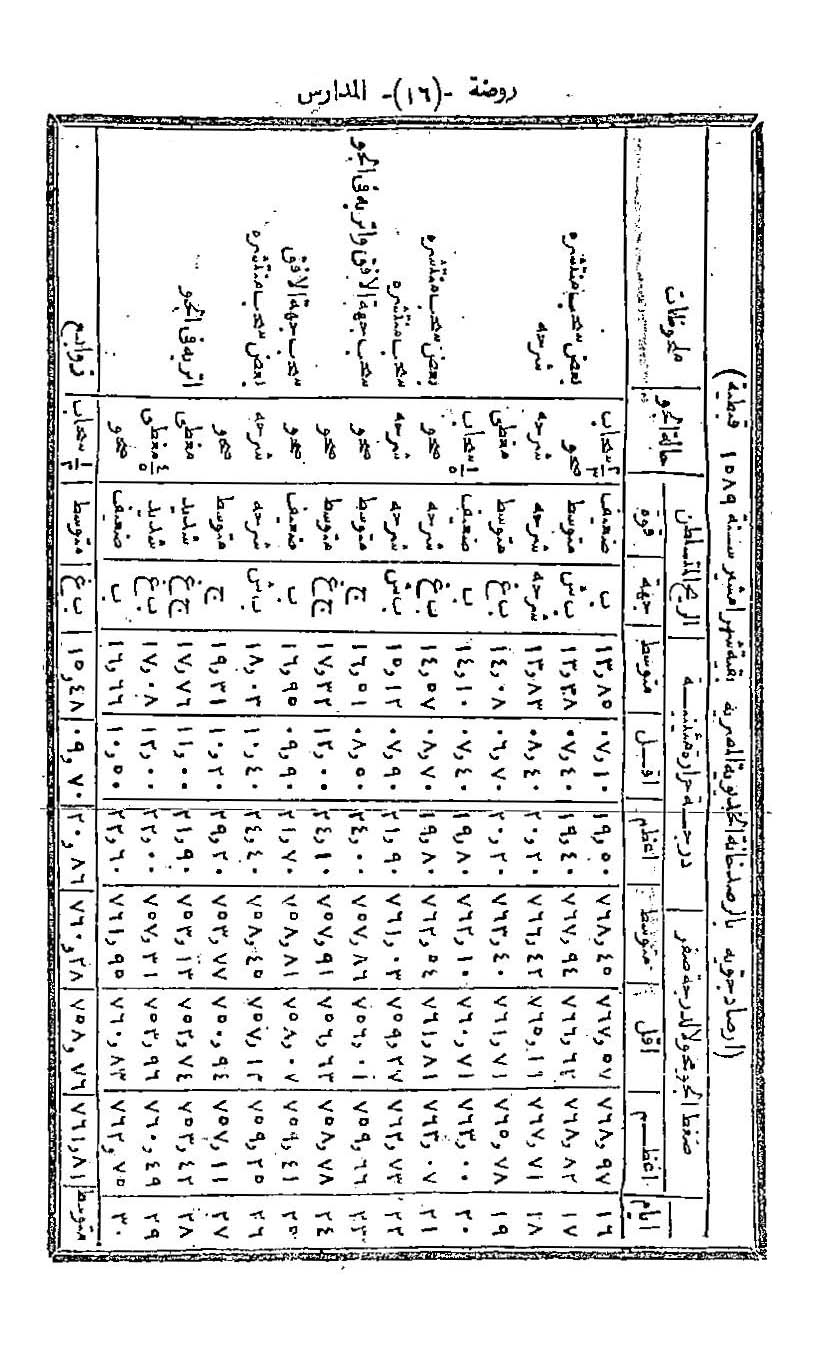 روضة -(١٦)- المدارس
(ارصاد جويه بالرصدخانة الخديوية المصريه بقية شهر امشير سنة ١٥٨٩ قبطية)
ضغط الجو محولا لدرجة صفر درجة حرارة مئينية الريح المتسلطن حالة الجو ملحوظات
ايام اعظم اقل متوسط اعظم اقل متوسط جهة قوه
١٦ ٧٦٨,٩٧ ٧٦٧,٥٧ ٧٦٨,٤٥ ١٩,٥٠ ٠٧,١٠ ١٣,٨٥ ب ضعيف ٢/٣ سحاب
١٧ ٧٦٨,٨٢ ٧٦٦,٦٢ ٧٦٧,٩٤ ١٩,٤٠ ٠٧,٤٠ ١٣,٣٨ ب.ش متوسط صحو بعض سحب منتشره
١٨ ٧٦٧,٧١ ٧٦٥,١١ ٧٦٦,٤٢ ٢٠,٢٠ ٠٨,٤٠ ١٣,٨٣ شرحه شرحه شرحه شرحه
١٩ ٧٦٥,٧٨ ٧٦١,٧١ ٧٦٣,٤٠ ٢٠,٢٠ ٠٦,٧٠ ١٤,٠٨ ب.غ متوسط مغطى
٢٠ ٧٦٣,٠٠ ٧٦٠,٧١ ٧٦٢,١٠ ١٩,٨٠ ٠٧,٤٠ ١٤,١٠ ب ضعيف ١/٥ سحاب
٢١ ٧٦٣,٠٧ ٧٦١,٨١ ٧٦٢,٥٤ ١٩,٨٠ ٠٨,٧٠ ١٤,٥٧ ب.غ شرحه صحو بعض سحب منتشره
٢٢ ٧٦٢,٧٣ ٧٥٩,٢٧ ٧٦١,٠٣ ٢١,٩٠ ٠٧,٩٠ ١٥,١٢ ب.ش شرحه شرحه سحب منتشره
٢٣ ٧٥٩,٦٦ ٧٥٦,٠١ ٧٥٧,٨٦ ٢٤,٠٠ ٠٨,٥٠ ١٦,٥١ ج متوسط صحو سحب جهة الافق واتربه فى الجو
٢٤ ٧٥٨,٧٨ ٧٥٦,٦٣ ٧٥٧,٩١ ٢٤,١٠ ١٢,٠٠ ١٧,٣٢ ج غ متوسط صحو
٢٥ ٧٥٩,٤١ ٧٥٨,٠٧ ٧٥٨,٨١ ٢١,٧٠ ٠٩,٩٠ ١٦,٩٥ ب ضعيف صحو سحب جهة الافق
٢٦ ٧٥٩,٢٥ ٧٥٧,١٢ ٧٥٨,٤٥ ٢٤,٤٠ ١٠,٤٠ ١٨,٠٣ ب.ش شرحه شرحه بعض سحب منتشره
٢٧ ٧٥٧,١١ ٧٥٠,٩٤ ٧٥٣,٧٧ ٢٩,٢٠ ١٠,٢٠ ١٩,٣١ ج متوسط صحو
٢٨ ٧٥٣,٤٢ ٧٥٢,٧٤ ٧٥٣,١٣ ٢١,٩٠ ١١,٠٠ ١٧,٧٦ ج غ شديد مغطى اتربه فى الجو
٢٩ ٧٦٠,٤٩ ٧٥٣,٩٦ ٧٥٧,٣١ ٢٢,٠٠ ١٣,٠٠ ١٧,٠٨ ب غ شديد ٤/٥ مغطى
٣٠ ٧٦٢,٧٥ ٧٦٠,٨٣ ٧٦١,٩٥ ٢٢,٦٠ ١٠,٥٠ ١٦,٦٦ ب ضعيف صحو
متوسط ٧٦١,٨١ ٧٥٨,٧٦ ٧٦٠,٢٨ ٢٠,٨٦ ٠٩,٧٠ ١٥,٤٨ ب غ متوسط ١/٣ سحاب زوابع